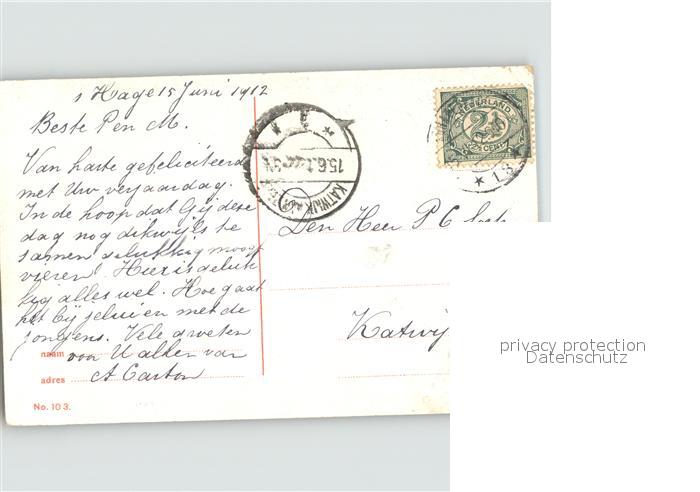 s Hage 15 Juni 1912
Beste P en M.
Van harte gefeliciteerd
met Uw verjaardag.
In de hoop dat Gij deze
dag nog dikwijls te
samen gelukkig moogt
vieren! Hier is geluk
kig alles wel. Hoe gaat
het bij jelui en met de
jongens. Vele groeten
voor U allen van
A Carton
naam
adres
No. 103.
KATWIJK A
15.6.12
NEDERLAND
2½
2½ CENT
1.3
Den Heer P C
Katwij
privacy protection
Datenschutz